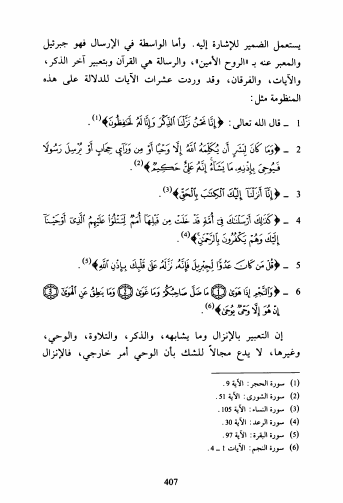 يستعمل الضمير للإشارة إليه. وأما الواسطة في الإرسال فهو جبرئيل
والمعبر عنه بـ «الروح الأمين»، والرسالة هي القرآن وبتعبير آخر الذكر،
والآيات، والفرقان، وقد وردت عشرات الآيات للدلالة على هذه
المنظومة مثل:
1 ـ قال الله تعالى: ﴿إِنَّا نَحْنُ نَزَّلْنَا الذِّكْرَ وَإِنَّا لَهُ لَحَافِظُونَ﴾(1).
2 ـ ﴿وَمَا كَانَ لِبَشَرٍ أَن يُكَلِّمَهُ اللَّهُ إِلَّا وَحْيًا أَوْ مِن وَرَآئِ حِجَابٍ أَوْ يُرْسِلَ رَسُولًا
فَيُوحِيَ بِإِذْنِهِ مَا يَشَآءُ إِنَّهُ عَلِيٌّ حَكِيمٌ﴾(2).
3 ـ ﴿إِنَّآ أَنزَلْنَآ إِلَيْكَ الْكِتَٰبَ بِالْحَقِّ﴾(3).
4 ـ ﴿كَذَٰلِكَ أَرْسَلْنَٰكَ فِىٓ أُمَّةٍ قَدْ خَلَتْ مِن قَبْلِهَآ أُمَمٌ لِّتَتْلُوَا۟ عَلَيْهِمُ الَّذِىٓ أَوْحَيْنَآ
إِلَيْكَ وَهُمْ يَكْفُرُونَ بِالرَّحْمَٰنِ﴾(4).
5 ـ ﴿قُلْ مَن كَانَ عَدُوًّا لِّجِبْرِيلَ فَإِنَّهُ نَزَّلَهُ عَلَىٰ قَلْبِكَ بِإِذْنِ اللَّهِ﴾(5).
6 ـ ﴿وَالنَّجْمِ إِذَا هَوَىٰ ۝ مَا ضَلَّ صَاحِبُكُمْ وَمَا غَوَىٰ ۝ وَمَا يَنطِقُ عَنِ الْهَوَىٰٓ ۝
إِنْ هُوَ إِلَّا وَحْىٌ يُوحَىٰ﴾(6).
إن التعبير بالإنزال وما يشابهه، والذكر، والتلاوة، والوحي،
وغيرها، لا يدع مجالاً للشك بأن الوحي أمر خارجي، فالإنزال
(1) سورة الحجر: الآية 9.
(2) سورة الشورى: الآية 51.
(3) سورة النساء: الآية 105.
(4) سورة الرعد: الآية 30.
(5) سورة البقرة: الآية 97.
(6) سورة النجم: الآيات 1 ـ 4.
407